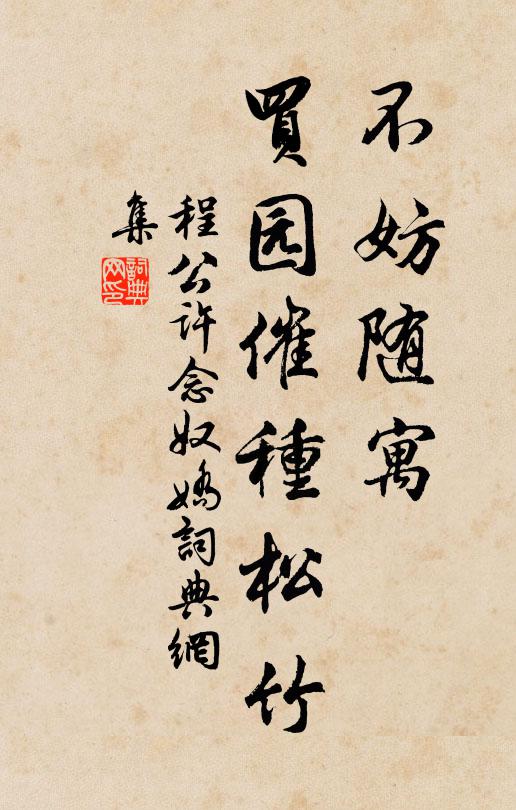 不妨随寓
買园催種松竹
程公许念奴娇詞典網
集
詞典
网印